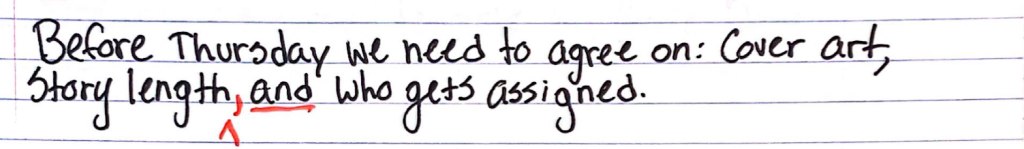 Before Thursday we need to agree on: Cover art,
Story length, and who gets assigned.